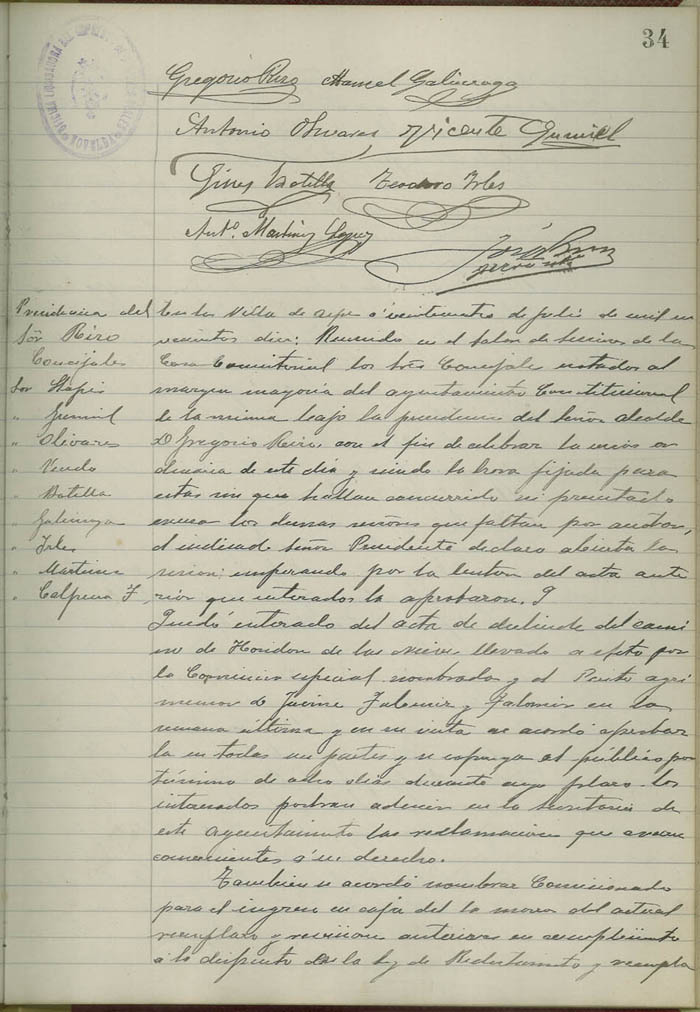 34
Gregorio Rizo Manuel Galinsoga
Antonio Olivares Vicente Jumiel
Gines Botella Teodoro Irles
Antº. Martinez Lopez
NOVELDA
Presidencia del
Sõr Rizo
Concejales
Sor
" Jumiel
" Olivares
"
" Botella
" Galinsoga
" Irles
" Martinez
" Calpena F
En la Villa de Aspe á veinticuatro de Julio de mil no
vecientos diez: Reunidos en el Salon de sesiones de la
Casa Consistorial los Sres Concejales notados al
margen mayoria del ayuntamiento Constitucional
de la misma bajo la presidencia del Señor alcalde
D Gregorio Rizo con el fin de celebrar la sesion or
dinaria de este dia y siendo la hora fijada para
estas sin que hallan concurrido ni presentado
escusa los demas señores que faltan por anotar,
el indicado Señor Presidente declaro abierta la
sesion: empezando por la lectura del acta ante
rior que enterados la aprobaron.
Quedó enterado del acta de deslinde del cami
no de Hondon de las Nieves llevado a efecto por
la Comision especial nombrada y el Perito agri
mensor D Jaime en la
semana última y en su vista se acordó aprobar
la en todas sus partes y se esponga al público por
término de ocho dias durante cuyo plazo los
interesados podran aducir en la secretaria de
este ayuntamiento las reclamaciones que crean
convenientes á su derecho.
Tambien se acordó nombrar Comisionado
para el ingreso en caja de los mozos del actual
reemplazo y revisiones anteriores en cumplimiento
á lo dispuesto en la ley de Reclutamiento y reempla